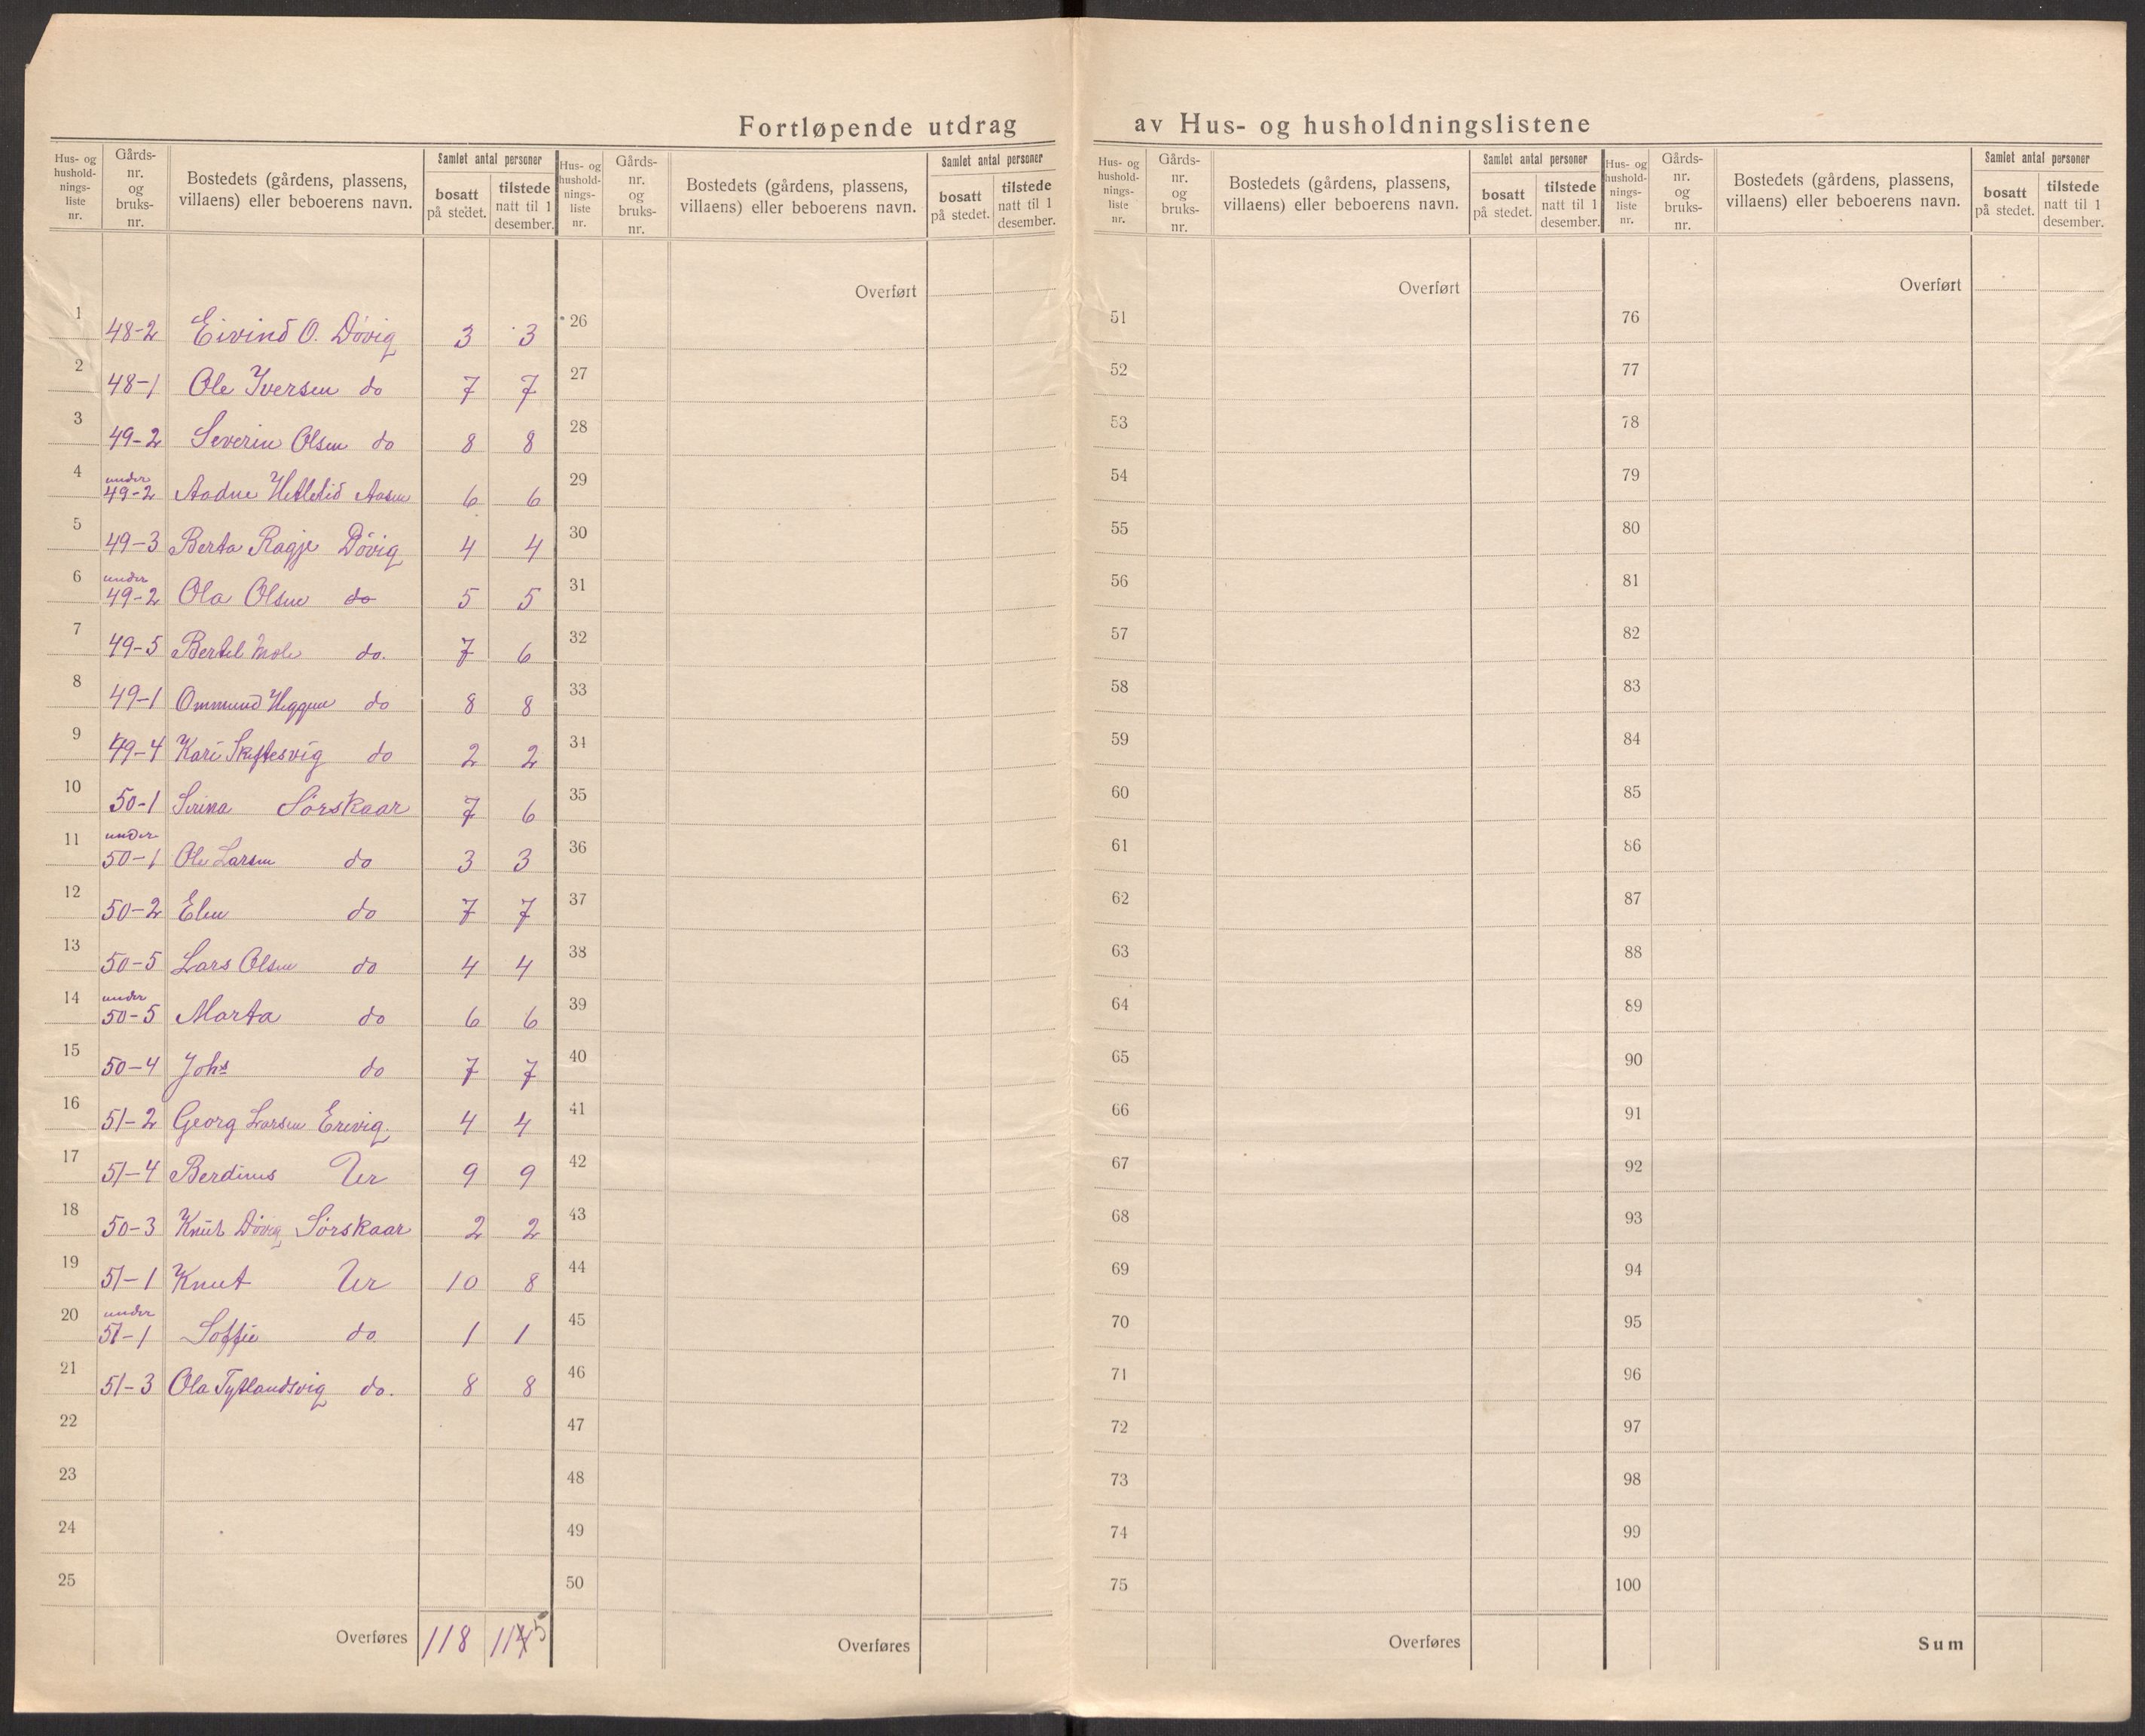 Fortløpende utdrag av Hus- og husholdningslistene
Hus- og hushold- nings- liste nr. | Gårds- nr. og bruks- nr. | Bostedets (gårdens, plassens, villaens) eller beboerens navn. | Samlet antal personer | bosatt på stedet. | tilstede natt til 1 desember.
1 48-2 Eivind O. Døvig 3 3
2 48-1 Ole Iversen do 7 7
3 49-2 Severin Olsen do 8 8
4 under 49-2 Aadne Hetletid Aasen 6 6
5 49-3 Berta Ragje Døvig 4 4
6 under 49-2 Ola Olsen do 5 5
7 49-5 Bertel Mole do. 7 6
8 49-1 Ommund Heggen do 8 8
9 49-4 Kari Skiftesvig do 2 2
10 50-1 Serina Sørskaar 7 6
11 under 50-1 Ole Larsen do 3 3
12 50-2 Elen do 7 7
13 50-5 Lars Olsen do 4 4
14 under 50-5 Marta do 6 6
15 50-4 Johs do 7 7
16 51-2 Georg Larsen Erevig 4 4
17 51-4 Berdinus Ur 9 9
18 50-3 Knut Døvig Sørskaar 2 2
19 51-1 Knut Ur 10 8
20 under 51-1 Soffie do 1 1
21 51-3 Ola Tytlandsvig do. 8 8
22
23
24
25
Overføres 118 1145
Hus- og hushold- nings- liste nr. | Gårds- nr. og bruks- nr. | Bostedets (gårdens, plassens, villaens) eller beboerens navn. | Samlet antal personer | bosatt på stedet. | tilstede natt til 1 desember.
Overført
26
27
28
29
30
31
32
33
34
35
36
37
38
39
40
41
42
43
44
45
46
47
48
49
50
Overføres
Hus- og hushold- nings- liste nr. | Gårds- nr. og bruks- nr. | Bostedets (gårdens, plassens, villaens) eller beboerens navn. | Samlet antal personer | bosatt på stedet. | tilstede natt til 1 desember.
Overført
51
52
53
54
55
56
57
58
59
60
61
62
63
64
65
66
67
68
69
70
71
72
73
74
75
Overføres
Hus- og hushold- nings- liste nr. | Gårds- nr. og bruks- nr. | Bostedets (gårdens, plassens, villaens) eller beboerens navn. | Samlet antal personer | bosatt på stedet. | tilstede natt til 1 desember.
Overført
76
77
78
79
80
81
82
83
84
85
86
87
88
89
90
91
92
93
94
95
96
97
98
99
100
Sum